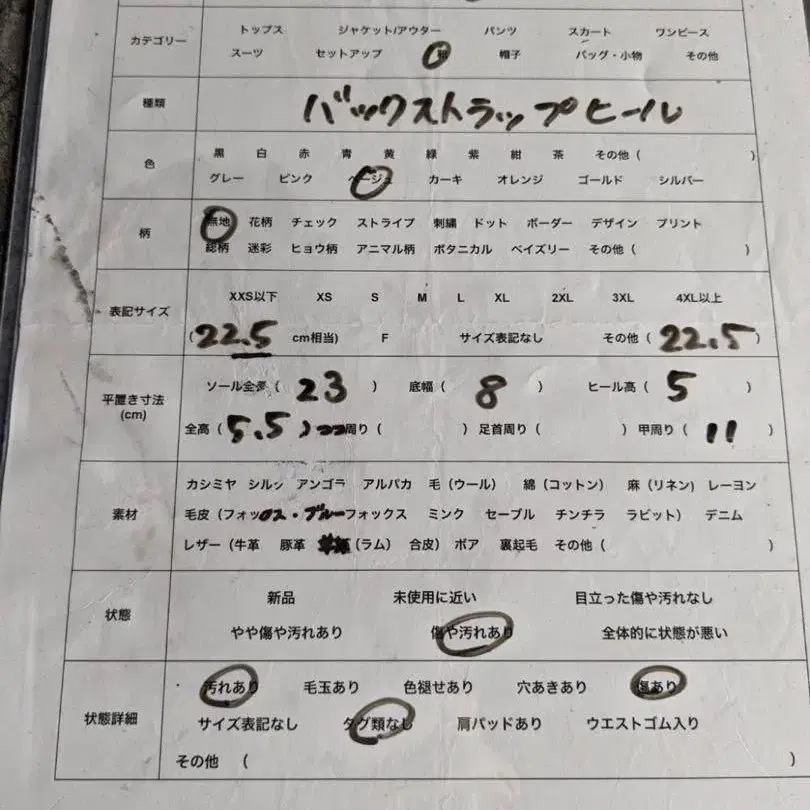 カテゴリー
トップス ジャケット/アウター パンツ スカート ワンピース
スーツ セットアップ 靴 帽子 バッグ・小物 その他
種類
バックストラップヒール
色
黒 白 赤 青 黄 緑 紫 紺 茶 その他 ( )
グレー ピンク ベージュ カーキ オレンジ ゴールド シルバー
柄
無地 花柄 チェック ストライプ 刺繍 ドット ボーダー デザイン プリント
総柄 迷彩 ヒョウ柄 アニマル柄 ボタニカル ペイズリー その他 ( )
表記サイズ
XXS以下 XS S M L XL 2XL 3XL 4XL以上
(22.5 cm相当) F サイズ表記なし その他 (22.5)
平置き寸法
(cm)
ソール全長 (23) 底幅 (8) ヒール高 (5)
全高 (5.5) 周り ( ) 足首周り ( ) 甲周り (11)
素材
カシミヤ シルク アンゴラ アルパカ 毛 (ウール) 綿 (コットン) 麻 (リネン) レーヨン
毛皮 (フォックス・ブルーフォックス ミンク セーブル チンチラ ラビット) デニム
レザー (牛革 豚革 (ラム) 合皮) ボア 裏起毛 その他 ( )
状態
新品 未使用に近い 目立った傷や汚れなし
やや傷や汚れあり 傷や汚れあり 全体的に状態が悪い
状態詳細
汚れあり 毛玉あり 色褪せあり 穴あきあり 傷あり
サイズ表記なし タグ類なし 肩パッドあり ウエストゴム入り
その他 ( )